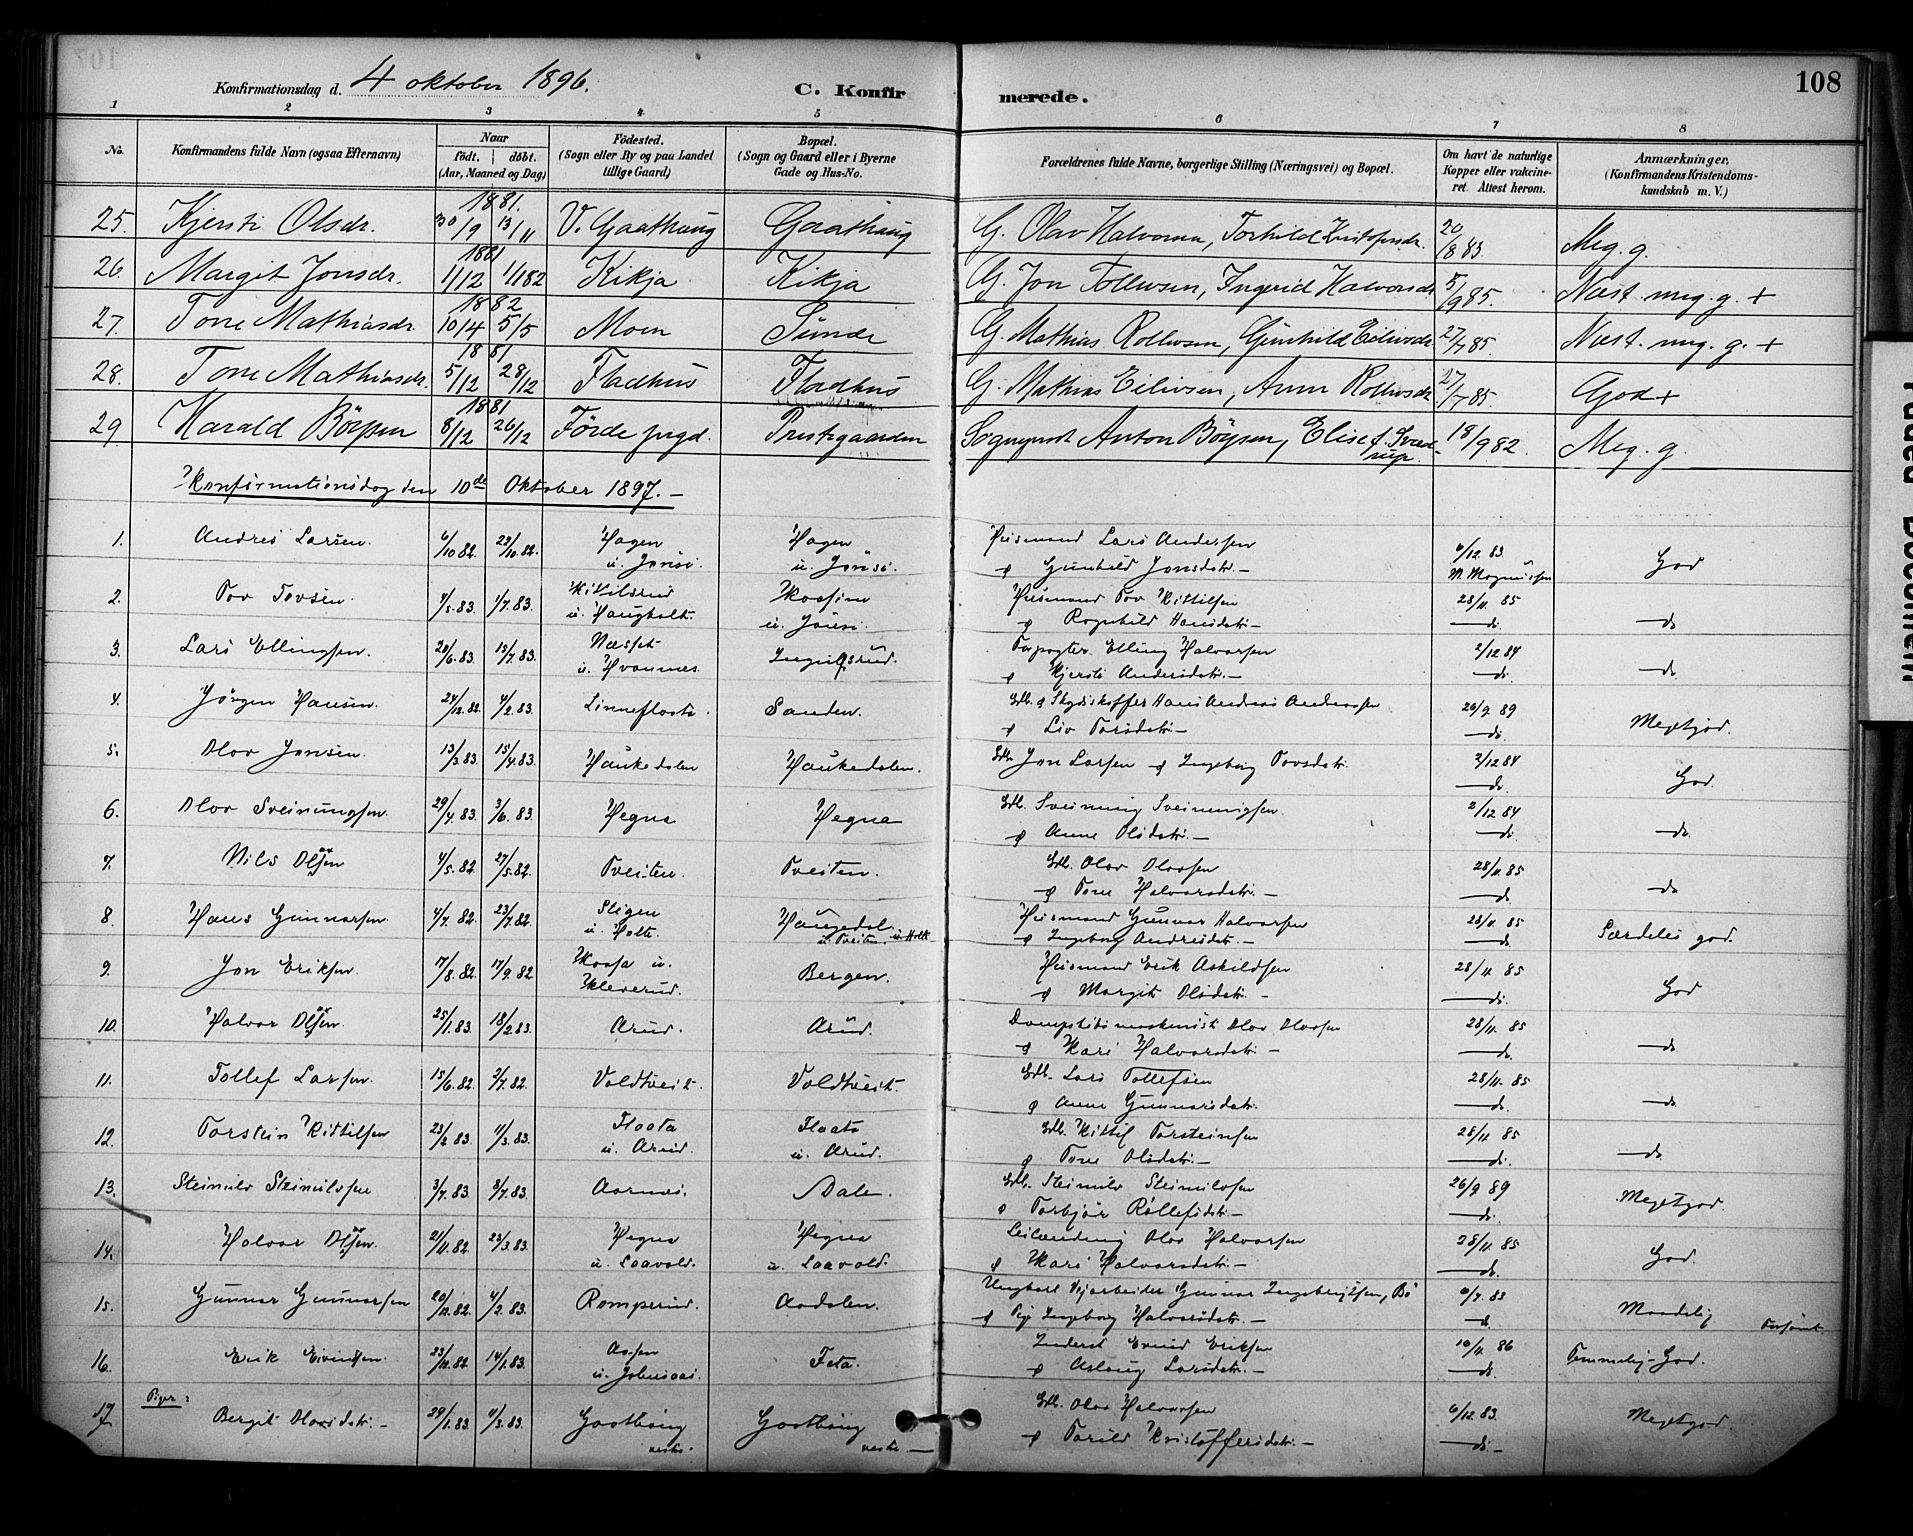 108
Konfirmationsdag d. 4 oktober 1896. C. Konfirmerede.
1 2 3 4 5 6 7 8
No. Konfirmandens fulde Navn (ogsaa Efternavn) Naar födt. döbt. (Aar, Maaned og Dag) Födested. (Sogn eller By og paa Landet tillige Gaard) Bopæl. (Sogn og Gaard eller i Byerne Gade og Hus-No. Forældrenes fulde Navne, borgerlige Stilling (Næringsvei) og Bopæl. Om havt de naturlige Kopper eller vakcineret. Attest herom. Anmærkninger. (Konfirmandens Kristendomskundskab m. V.)
25. Kjersti Olsdr. 1881. 30/9 13/11 V. Gaathaug Gaathaug G. Olav Halvorsen, Torhild Kristofersdr. 20/8 83. Meg. g.
26. Margit Jonsdr. 1881 1/12 1/1 82 Kikja Kikja G. Jon Tollevsen, Ingerid Halvorsdr 5/9 85. Næst. meg. g. +
27. Tone Mathiasdr. 1882 10/4 5/5 Moen Sunde G. Mathias Rollevsen, Gunhild Eilivsdr. 27/7 85. Næst. meg. g. +
28. Tone Mathiasdr. 1881 5/12 28/12 Fladhus Fladhus G. Mathias Eilivsen, Anne Rollevsdr. 27/7 85. God +
29. Harald Börgsen 1881 8/12 26/12 Förde prgd. Prestegaarden Sogneprest Anton Börgsen, Elise f. Sverdrup. 18/9 82. Meg. g.
Konfirmationsdag den 10de Oktober 1897. —
1. Andres Larsen. 6/10 82. 29/10 82. Hagen u. Jönsi. Hagen u. Jönsi. Husmand Lars Andersen & Gunhild Jonsdatr. — 6/12 83. M. Magnussen God
2. Tov Tovsen. 4/5. 83. 1/7. 83. Kittilsrud u. Haugholt. u. Jönsi. Husmand Tov Kittilsen & Ragnhild Hansdatr — 28/11. 85 — do. — do
3. Lars Ellingsen. 20/6. 83. 15/7. 83. Næsset u. Hvammes. Ingulfsrud. Elling Halvorsen & Kjersti Andersdatr. — 2/12 84 — do. — do
4. Jörgen Hansen. 24/12. 82. 4/2. 83. Linneflaata. Sanden. Gdb. & Skydsskaffer Hans Andreas Anderssen & Liv Torsdatr. — 26/9. 89 — do. Megetgod.
5. Olav Jonsen. 13/3. 83. 15/4. 83. Haukedalen Haukedalen. Gdb. Jon Larsen & Ingeborg Tovsdatr. 2/12 84 — do. God.
6. Olav Sveinungsen. 29/4. 83. 3/6. 83. Hegna Hegna Gdb. Sveinung Sveinungsen & Anne Olsdatr. — 2/12 84 — do. — do.
7. Nils Olsen 4/5. 82. 27/5. 82. Tveiten. Tveiten. Gdb. Olav Olavsen & Tone Halvorsdatr. — 28/11. 85 — do. — do
8. Hans Gunnarsen. 4/7. 82. 23/7. 82. Stigen u. Holte. Haugedal u. Tveiten u. Holt Husmand Gunnar Halvorsen & Ingeborg Andresdatr. — 28/11. 85 — do. Særdeles god.
9. Jon Eriksen. 7/8. 82. 17/9. 82 Kaasa u. Kleverud. Bergen. Husmand Erik Askildsen & Margit Olsdatr. — 28/11. 85 — do. God
10. Halvor Olsen. 25/1. 83. 18/2. 83. Arud. Arud. Olav Olavsen & Kari Halvorsdatr. — 28/11. 85 — do. — do
11. Tollef Larsen. 15/6. 82. 2/7. 82. Valdtveit. Valdtveit. Gdb. Lars Tollefsen & Anne Gunnarsdatr. 28/11. 85 — do. — do
12. Torstein Kittilsen 23/2. 83. 11/3. 83. Flaata u. Arud. Flaata u. Arud. Gdb. Kittil Torsteinsen & Tone Olsdatr. — 28/11. 85 — do. — do.
13. Steinulv Steinulvsen 3/7. 83. 8/7. 83. Aarnæs. Dale. Gdb. Steinulv Steinulvsen & Torbjör Rollefsdatr. — 26/9 89 — do. Megetgod.
14. Halvor Olsen. 21/11. 82. 23/3. 83. Hegna u. Laavald. Hegna u. Laavald. Leilænding Olav Halvorsen & Kari Halvorsdatr. — 28/11. 85 — do. God.
15. Gunnar Gunnarsen 20/12. 82. 4/2. 83. Romperud. Aadalen. Ungkarl Veiarbeider Gunnar Ingebrigtsen, Bö & Pige Ingeborg Halvorsdatr. — 6/7. 83 — do Maadelig Forsömt.
16. Erik Eivindsen. 23/11. 82. 14/1. 83. Feta. Inderst Eivind Eriksen & Aslaug Larsdatr. — 10/11. 86 — do. Temmelig-God.
Piger:
17. Bergit Olavsdatr. — 29/1. 83. 11/3. 83. Gaathaug vestre. Gaathaug vestre — Gdb. Olav Halvorsen & Torild Kristoffersdatr. — 6/12. 83. — do. — Megetgod